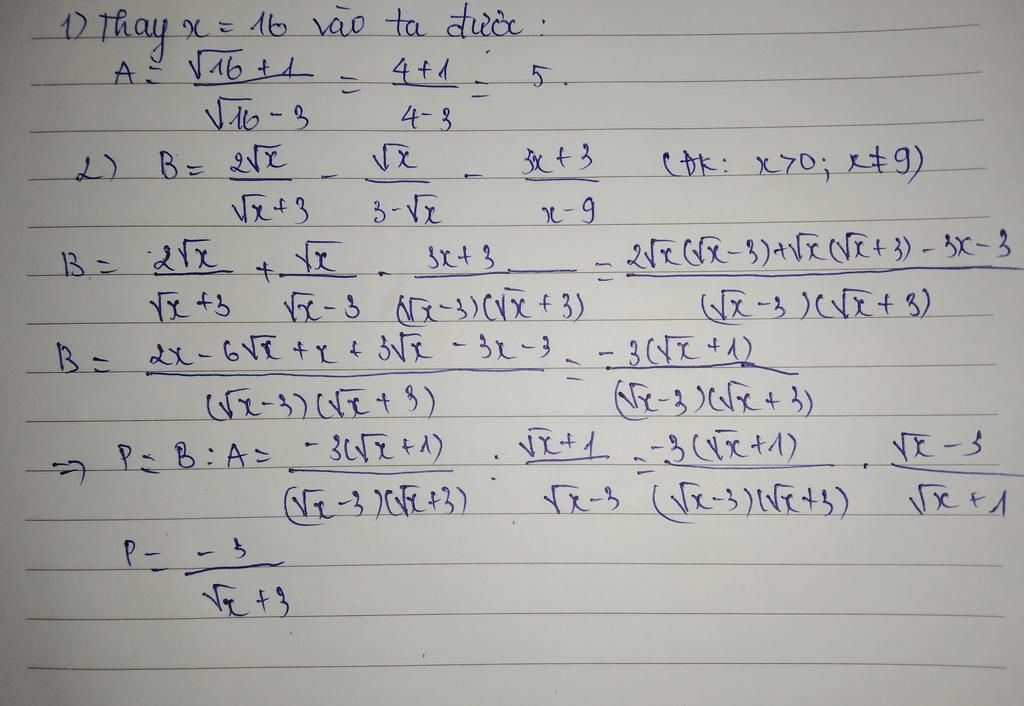 1) Thay x = 16 vào ta được :
A = (√16 + 1)/(√16 - 3) = (4+1)/(4-3) = 5.
2) B = 2√x/(√x+3) - √x/(3-√x) - (3x+3)/(x-9) (ĐK: x>0; x≠9)
B = 2√x/(√x+3) + √x/(√x-3) - (3x+3)/((√x-3)(√x+3)) = (2√x(√x-3)+√x(√x+3) - 3x-3)/((√x-3)(√x+3))
B = (2x - 6√x + x + 3√x - 3x - 3)/((√x-3)(√x+3)) = -3(√x+1)/((√x-3)(√x+3))
=> P = B : A = -3(√x+1)/((√x-3)(√x+3)) : (√x+1)/(√x-3) = -3(√x+1)/((√x-3)(√x+3)) . (√x-3)/(√x+1)
P = -3/(√x+3)